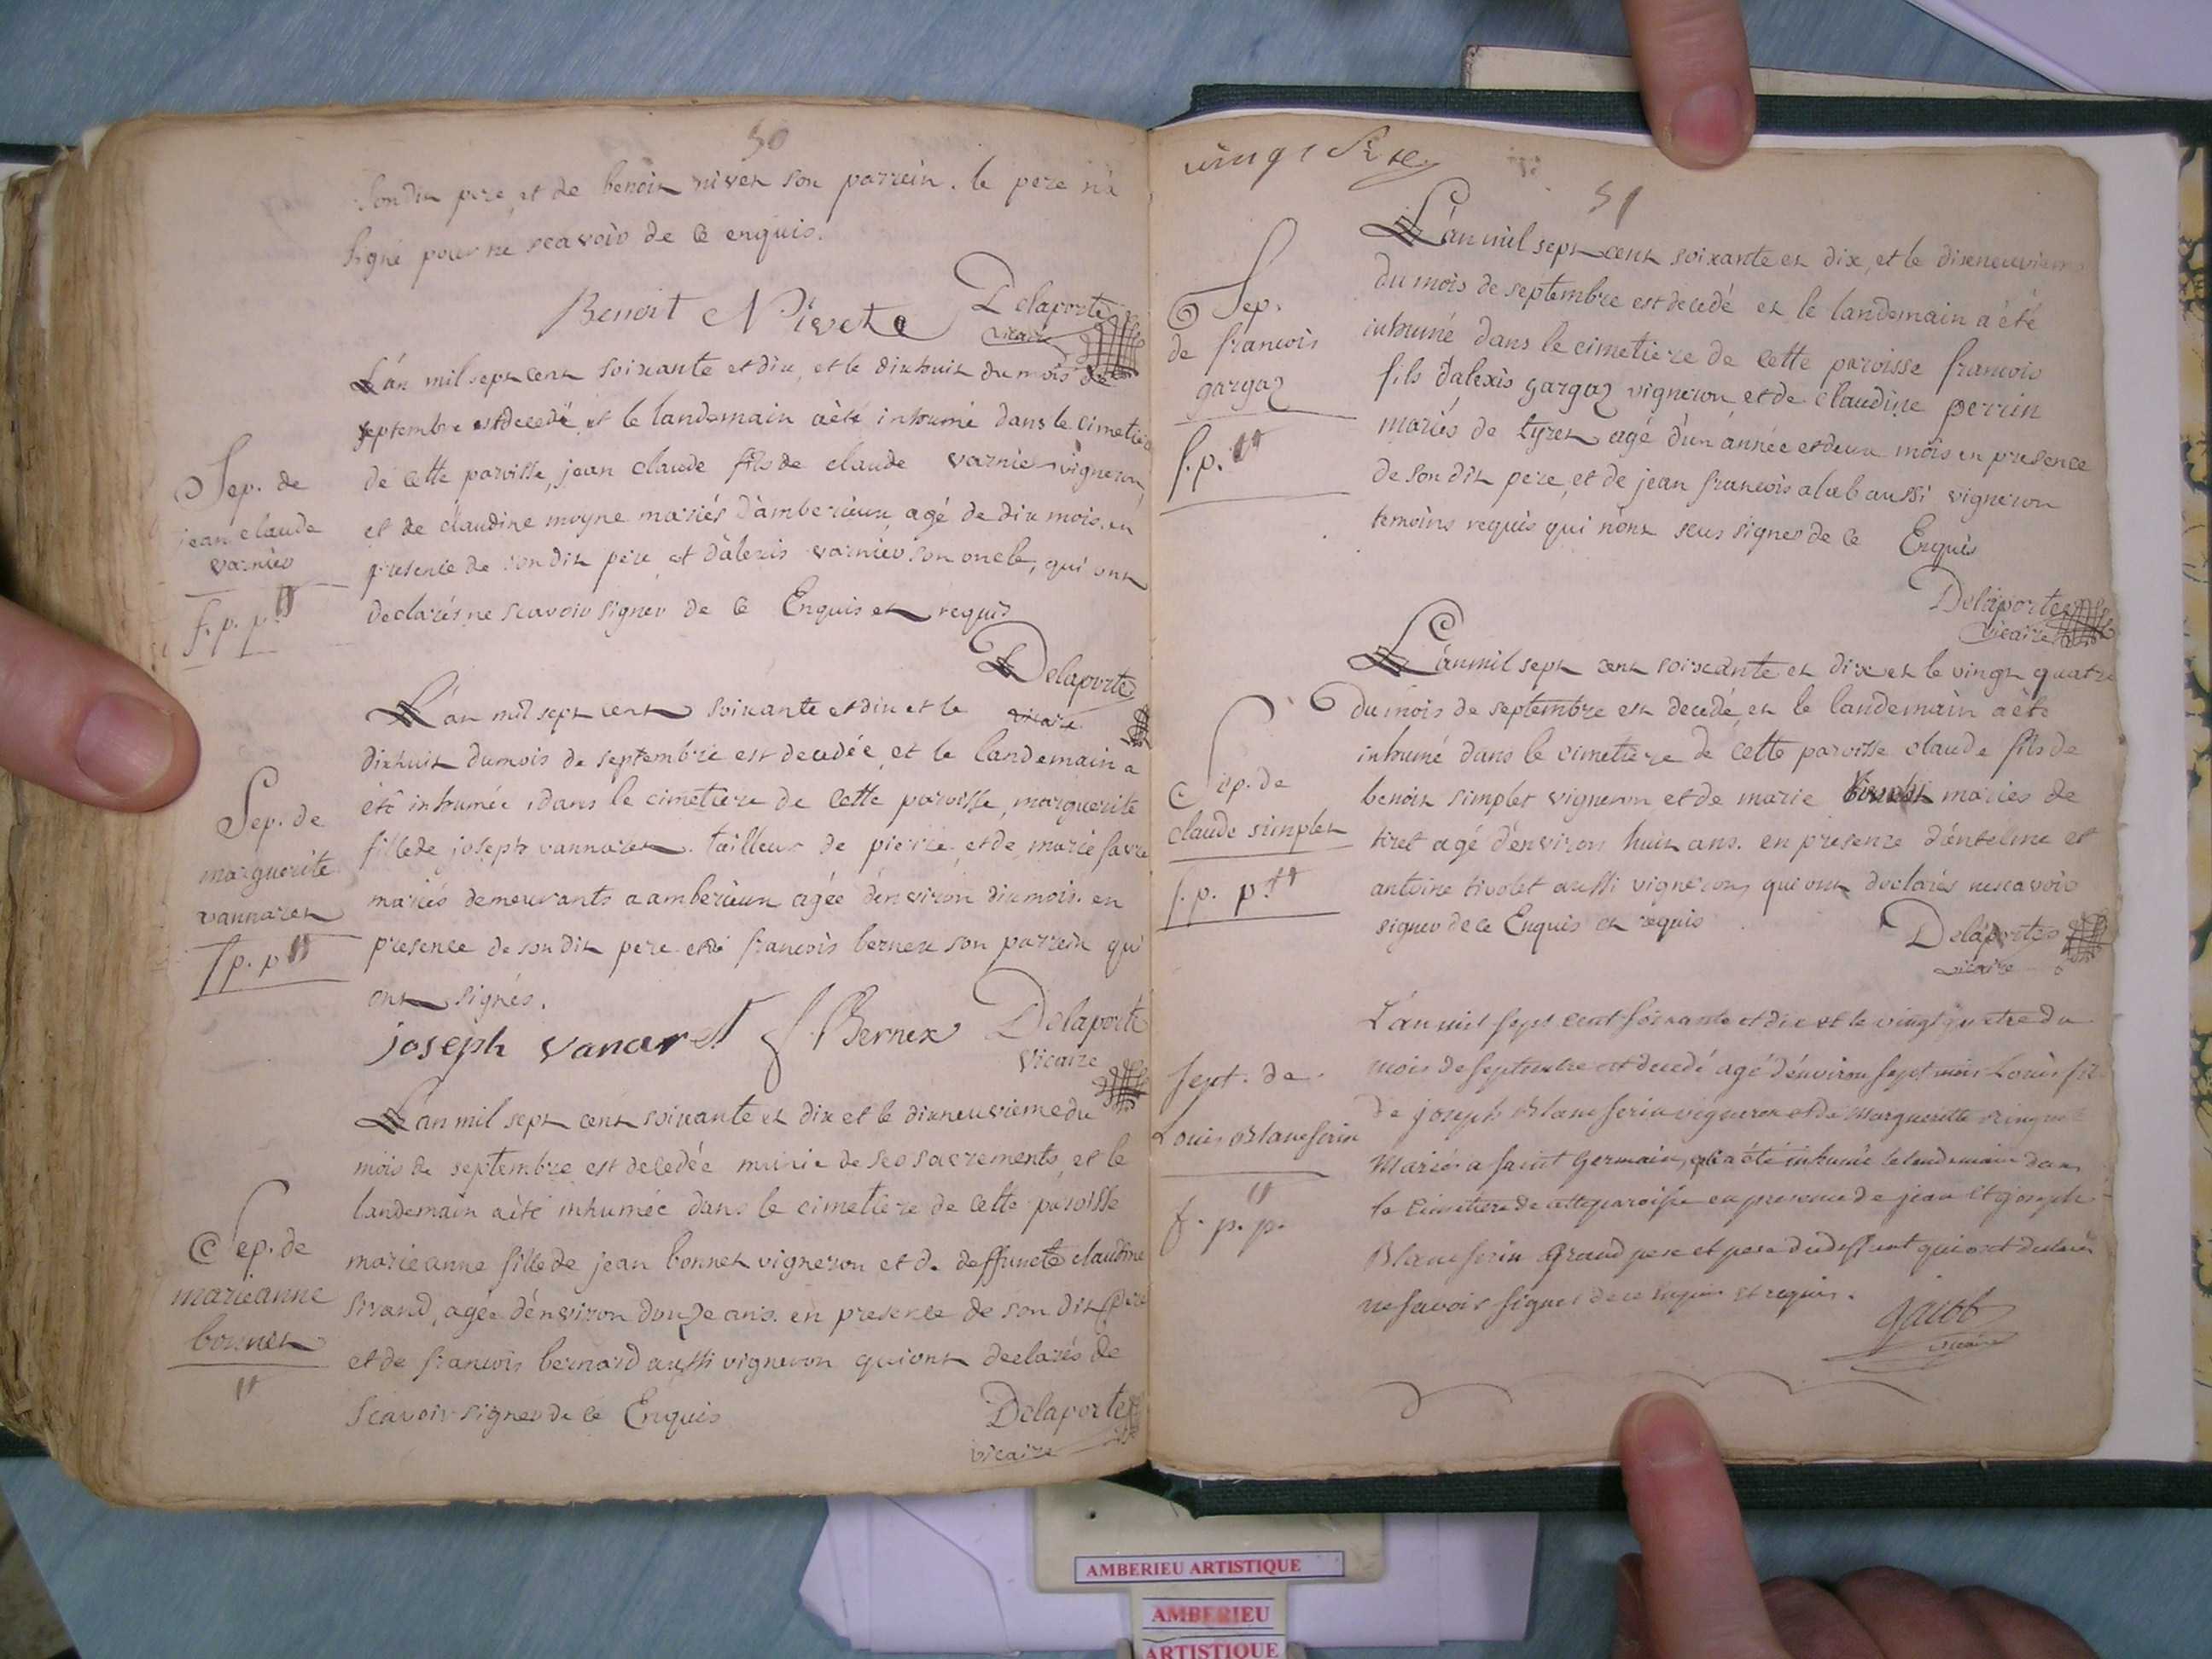 50
son dit pere, et de benoit nivet son parrein. le pere n'a
signé pour ne scavoir de ce enquis.
Benoit Nivete Delaporte
vicaire
L'an mil sept cent soixante et dix, et le dixhuit du mois de
septembre est decedé et le landemain a èté inhumé dans le cimetiere
de cette paroisse, jean claude fils de claude varnier vigneron,
et de claudine moyne mariés d'amberieux, agé de dix mois. en
presence de son dit pere et d'alexis varnier son oncle, qui ont
declarés ne scavoir signer de ce Enquis et requis
Delaporte
vicaire
Sep. de
jean claude
varnier
f. p. p.
L'an mil sept cent soixante et dix et le
dixhuit du mois de septembre est decedée et le landemain a
été inhumée dans le cimetiere de cette paroisse, marguerite
fille de joseph vannaret tailleur de pierre, et de marie favre
mariés demeurants a amberieux agée d'environ dix mois. en
presence de son dit pere et de francois bernex son parrein qui
ont signés.
joseph vanaret f Bernex Delaporte
vicaire
Sep. de
marguerite
vannaret
f p. p
L'an mil sept cent soixante et dix et le dixneuvieme du
mois de septembre est decedée munie de ses sacrements, et le
landemain a èté inhumée dans le cimetiere de cette paroisse
marieanne fille de jean bonnet vigneron et de deffuncte claudine
sivand, agée d'environ douze ans. en presence de son dit pere
et de francois bernard aussi vigneron qui ont declarés de
scavoir signer de ce Enquis
Delaporte
vicaire
Sep. de
marieanne
bonnet
vingt six
51
L'an mil sept cent soixante et dix, et le dixneuvieme
du mois de septembre est decedé et le landemain a été
inhumé dans le cimetiere de cette paroisse francois
fils d'alexis gargaz vigneron et de claudine perrin
mariés de tyret agé d'un année et deux mois en presence
de son dit pere, et de jean francois alab aussi vigneron
temoins requis qui n'ont sçus signer de ce Enquis
Delaporte
vicaire
Sep.
de francois
gargaz
f. p.
L'an mil sept cent soixante et dix et le vingt quatre
du mois de septembre est decedé, et le landemain a èté
inhumé dans le cimetiere de cette paroisse claude fils de
benoit simplet vigneron et de marie mariés de
tiret agé d'environ huit ans. en presence d'antelme et
antoine tivolet aussi vignerons, qui ont declarés ne scavoir
signer de ce Enquis et requis
Delaporte
vicaire
Sep. de
claude simplet
f. p. p.
L'an mil sept cent soixante et dix et le vingt quatre du
mois de septembre est decedé agé d'environ sept mois Louis fils
de joseph Blanc ferin vigneron et de Marguerite
Mariés a saint Germain, et a été inhumé le lendemain dans
le cimetiere de cette paroisse en presence de jean et joseph
Blanc ferin Grand pere et pere du deffunt qui ont declaré
ne savoir signer de ce enquis et requis.
jacob
vicaire
Sept. de
Louis Blancferin
f. p. p.
AMBERIEU ARTISTIQUE
AMBERIEU
ARTISTIQUE